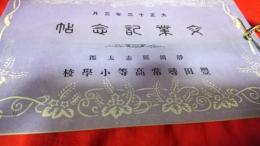 大正十三年三月
卒業記念帖
靜岡縣志太郡
豐田尋常高等小學校